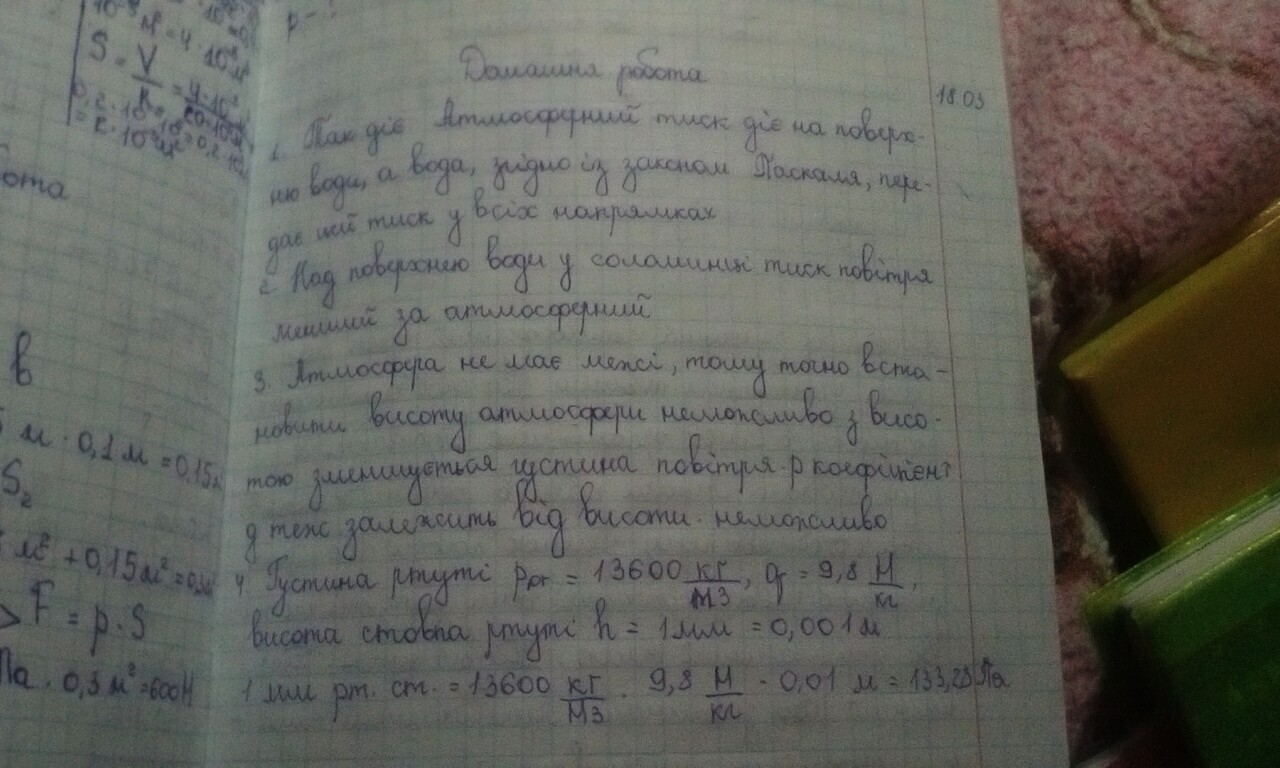 10⁻⁴ м² = 4 · 10⁻²м
S = V
= 4·10
= 2 · 10
ота
в
м · 0,1 м = 0,15м
S₂
м² + 0,15м² = 0,3м²
> F = p·S
Па · 0,3 м² = 600Н
p - ?
Домашня робота
18.03
1. Так діє Атмосферний тиск діє на поверх-
ню води, а вода, згідно із законом Паскаля, пере-
дає цей тиск у всіх напрямках
2. Над поверхнею води у соломинці тиск повітря
менший за атмосферний
3. Атмосфера не має межі, тому точно вста-
новити висоту атмосфери неможливо з висо-
тою зменшується густина повітря. p коефіцієнт
g теж залежить від висоти. неможливо
4 Густина ртуті pрт = 13600 кг/м3, g = 9,8 Н/кг,
висота стовпа ртуті h = 1мм = 0,001м
1 мм рт. ст. = 13600 кг/м3 · 9,8 Н/кг · 0,01 м = 133,28 Па